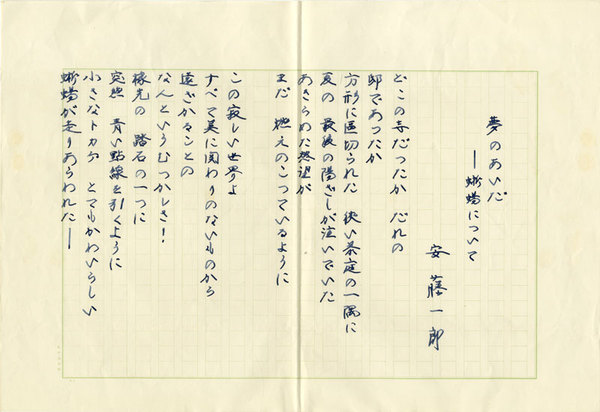 夢のあいだ
――蜥蜴について
安藤一郎
どこの寺だったか だれの
邸であったか
方形に区切られた 狭い茶庭の一隅に
夏の 最後の陽ざしが泣いていた
あきらめた慾望が
まだ 燃えのこっているように
この寂しい世界よ
すべて美に関わりのないものから
遠ざかることの
なんというむつかしさ!
縁先の 踏石の一つに
突然 青い點線を引くように
小さなトカゲ とてもかわいらしい
蜥蜴が走りあらわれた――